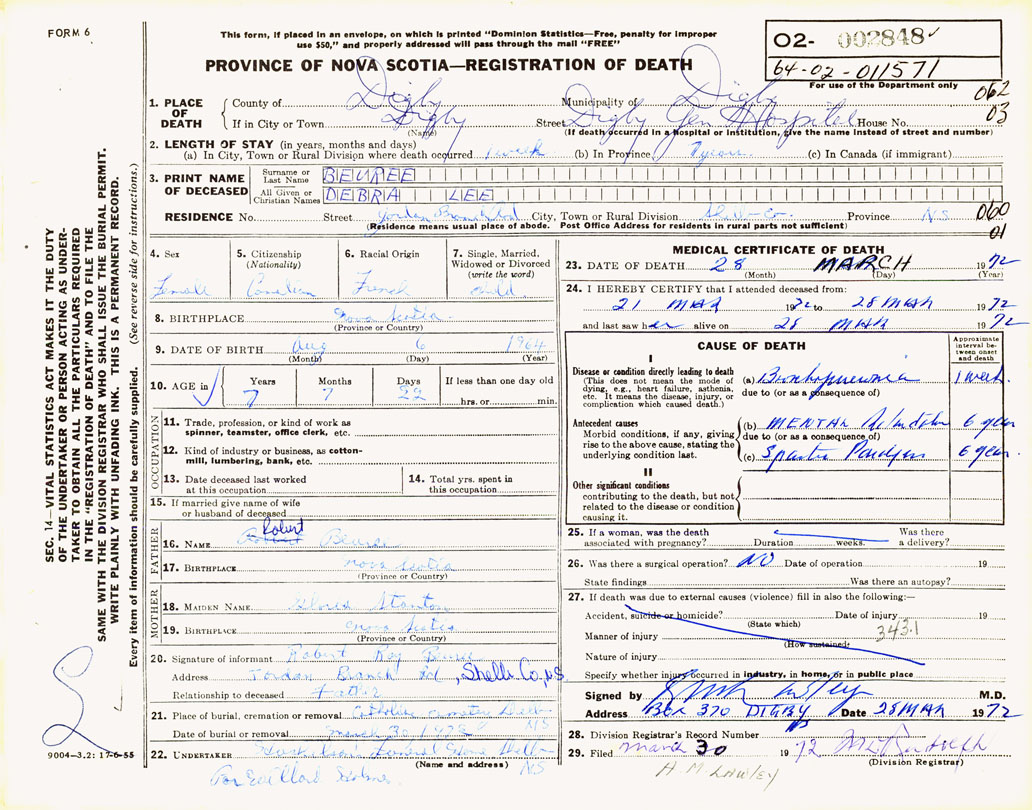 FORM 6
This form, if placed in an envelope, on which is printed "Dominion Statistics—Free, penalty for improper
use $50," and properly addressed will pass through the mail "FREE"
PROVINCE OF NOVA SCOTIA—REGISTRATION OF DEATH
O2- 002848
64-02-011571
For use of the Department only
062
03
1. PLACE OF DEATH
County of Digby Municipality of Digby
If in City or Town Digby Street Digby Gen Hospital House No.
(Name) (If death occurred in a hospital or institution, give the name instead of street and number)
2. LENGTH OF STAY (in years, months and days)
(a) In City, Town or Rural Division where death occurred 1 week (b) In Province 7 years (c) In Canada (if immigrant)
3. PRINT NAME OF DECEASED
Surname or Last Name BEUREE
All Given or Christian Names DEBRA LEE
RESIDENCE No. Street Jordan Branch Rd City, Town or Rural Division Shell-Co- Province N.S
060
01
(Residence means usual place of abode. Post Office Address for residents in rural parts not sufficient)
4. Sex Female
5. Citizenship (Nationality) Canadian
6. Racial Origin French
7. Single, Married, Widowed or Divorced (write the word) child
8. BIRTHPLACE Nova Scotia
(Province or Country)
9. DATE OF BIRTH Aug 6 1964
(Month) (Day) (Year)
10. AGE in Years 7 Months 7 Days 22 If less than one day old hrs. or min.
OCCUPATION
11. Trade, profession, or kind of work as spinner, teamster, office clerk, etc.
12. Kind of industry or business, as cotton-mill, lumbering, bank, etc.
13. Date deceased last worked at this occupation
14. Total yrs. spent in this occupation
15. If married give name of wife or husband of deceased
FATHER
16. NAME Robert
17. BIRTHPLACE Nova Scotia
(Province or Country)
MOTHER
18. MAIDEN NAME Stanton
19. BIRTHPLACE Nova Scotia
(Province or Country)
20. Signature of informant Robert Roy
Address Jordan Branch Rd, Shelb Co, N.S
Relationship to deceased Father
21. Place of burial, cremation or removal Catholic N.S
Date of burial or removal March 30 1972
22. UNDERTAKER Funeral Home N.S
(Name and address)
MEDICAL CERTIFICATE OF DEATH
23. DATE OF DEATH 28 MARCH 1972
(Month) (Day) (Year)
24. I HEREBY CERTIFY that I attended deceased from:
21 MAR 1972 to 28 MAR 1972
and last saw her alive on 28 MAR 1972
CAUSE OF DEATH
Approximate interval between onset and death
I
Disease or condition directly leading to death
(This does not mean the mode of dying, e.g., heart failure, asthenia, etc. It means the disease, injury, or complication which caused death.)
(a) Bronchopneumonia 1 week.
due to (or as a consequence of)
Antecedent causes
Morbid conditions, if any, giving rise to the above cause, stating the underlying condition last.
(b) MENTAL 6 year
due to (or as a consequence of)
(c) Spastic 6 year
II
Other significant conditions
contributing to the death, but not related to the disease or condition causing it.
25. If a woman, was the death associated with pregnancy? Duration weeks. Was there a delivery?
26. Was there a surgical operation? NO Date of operation 19
State findings Was there an autopsy?
27. If death was due to external causes (violence) fill in also the following:—
Accident, suicide or homicide? Date of injury 19
(State which)
343.1
Manner of injury
(How sustained)
Nature of injury
Specify whether injury occurred in industry, in home, or in public place
Signed by M.D.
Address BOX 370 DIGBY NS Date 28 MAR 1972
28. Division Registrar's Record Number
29. Filed March 30 1972
(Division Registrar)
H M LAWLEY
SEC. 14—VITAL STATISTICS ACT MAKES IT THE DUTY
OF THE UNDERTAKER OR PERSON ACTING AS UNDER-
TAKER TO OBTAIN ALL THE PARTICULARS REQUIRED
IN THE "REGISTRATION OF DEATH" AND TO FILE THE
SAME WITH THE DIVISION REGISTRAR WHO SHALL ISSUE THE BURIAL PERMIT.
WRITE PLAINLY WITH UNFADING INK. THIS IS A PERMANENT RECORD.
Every item of information should be carefully supplied. (See reverse side for instructions.)
9004—3,2: 17-6-55